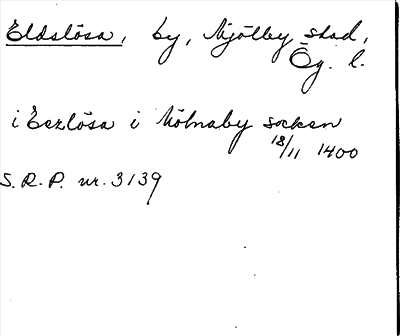 Eldslösa, by, Mjölby stad,
Ög. l.
i Eezlösa i Mölnaby socken
18/11 1400
S.R.P. nr. 3139